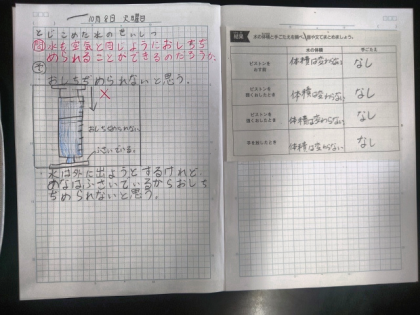 10月8日 火曜日
とじこめた水のせいしつ
問 水も空気と同じようにおしちぢ
められることができるのだろうか。
予
おしちぢめられないと思う。
おしちぢめられない。
ふさいでいる。
水は外に出ようとするけれど、
あなはふさいでいるからおしち
ぢめられないと思う。
結果 水の体積と手ごたえを調べ、表や文でまとめましょう。
水の体積 手ごたえ
ピストンを
おす前 体積は変わらない なし
ピストンを
軽くおしたとき 体積は変わらない なし
ピストンを
強くおしたとき 体積は変わらない なし
手をはなしたとき 体積は変わらない なし